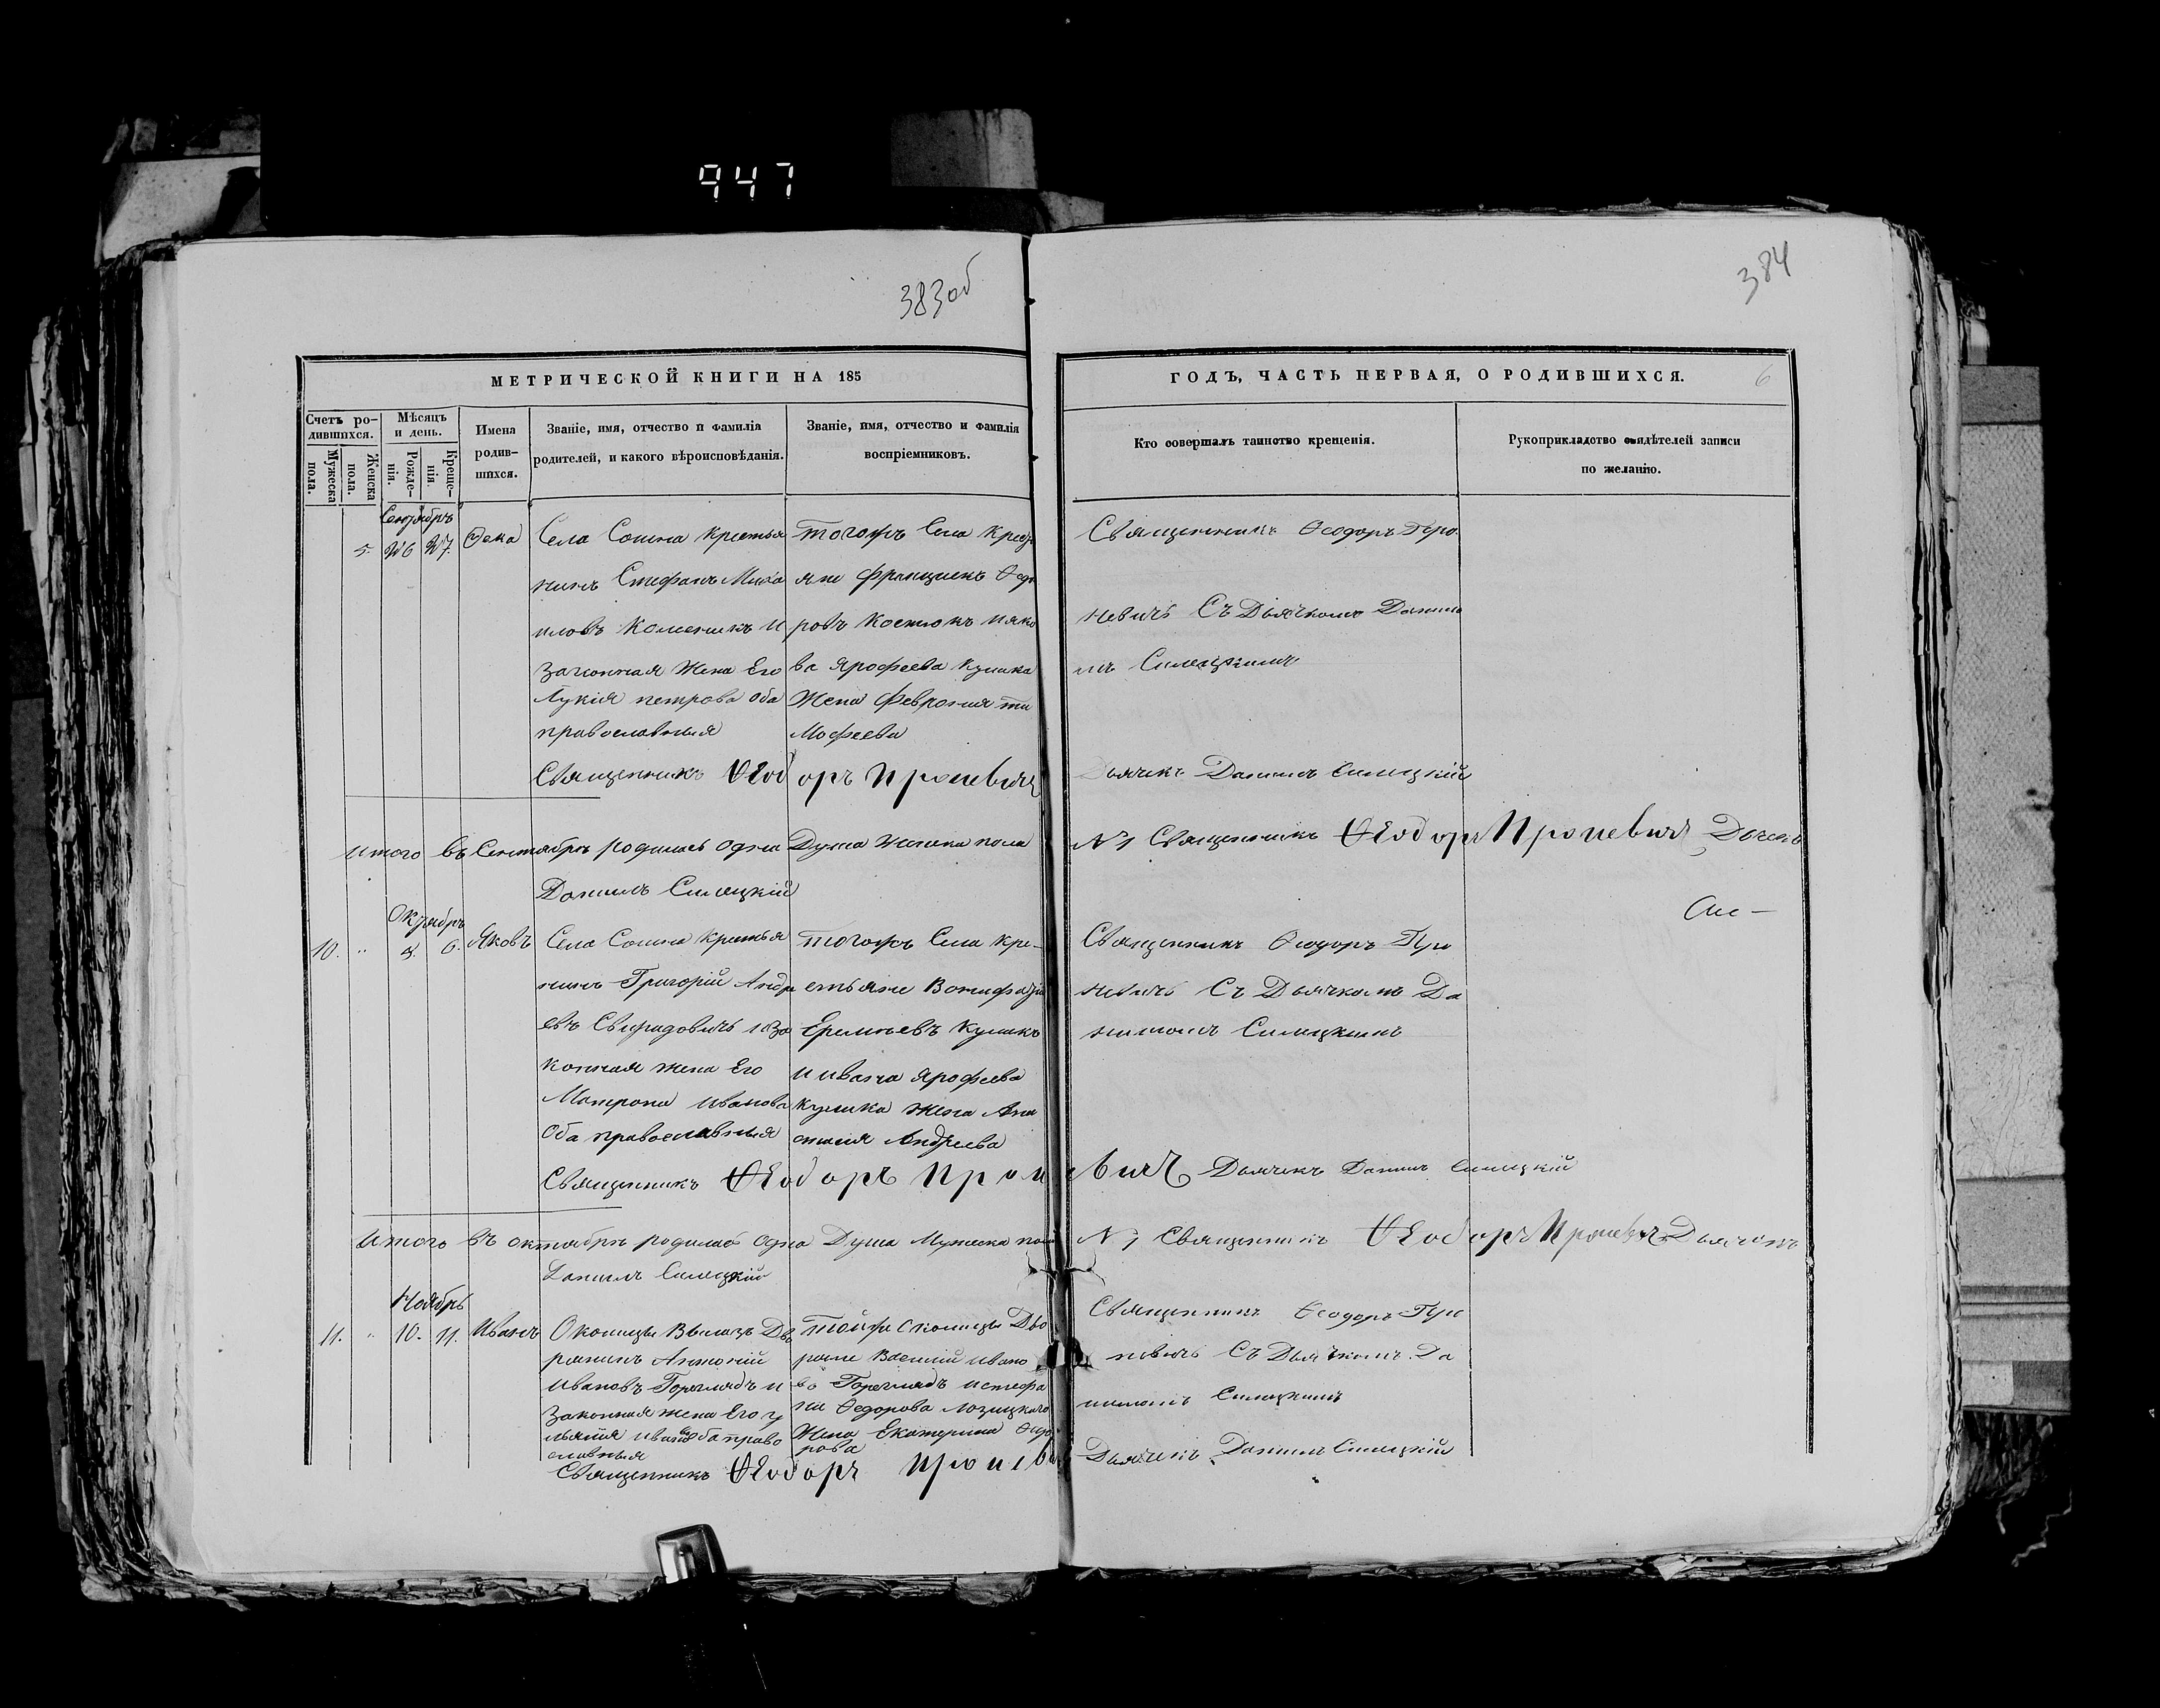 947
383об
384
МЕТРИЧЕСКОЙ КНИГИ НА 185
ГОДЪ, ЧАСТЬ ПЕРВАЯ, О РОДИВШИХСЯ.
6
Счетъ ро-
дившихся.
Мужеска пола.
Женска пола.
Мѣсяцъ
и день.
Рожде-
нія.
Креще-
нія.
Имена
родив-
шихся.
Званіе, имя, отчество и фамилія
родителей, и какого вѣроисповѣданія.
Званіе, имя, отчество и фамилія
воспріемниковъ.
Кто совершалъ таинство крещенія.
Рукоприкладство свидѣтелей записи
по желанію.
Сентябрь
5. 26 27.
Села Сошна крестья
нинъ Стефанъ Миха
иловъ и
законная жена Его
Лукія петрова оба
православныя
тогожъ Села крест
яне Францискъ Ѳедо
ровъ Костюкъ и яко
ва Ярофеева кулика
Жена Феврония ти
мофеева
Священникъ Ѳеодоръ Про
невичъ Съ Дьячкомъ Данило
мъ Силецкимъ
Священникъ Ѳеодоръ Проневичъ
Дьячекъ Данилъ Силецкій
Итого въ Сентябрѣ родилась одна Душа женска пола
N 1 Священникъ Ѳеодоръ Проневичъ Дьячекъ
Данилъ Силецкій
Октябрь
10. " 5. 6. Яковъ
Села Сошна крестья
нинъ Григорій Андре
евъ Свиридовичъ и за
конная жена Его
Матрона Иванова
Оба православныя
тогожъ Села кре-
стьяне Вонифатій
Еремѣевъ Куликъ
и ивана Ярофеева
кулика жена Ана
стасия Андреева
Священникъ Ѳеодоръ Про
невичъ Съ Дьячкомъ Да
ниломъ Силецкимъ
Священникъ Ѳеодоръ Проневичъ Дьячекъ Данилъ Силецкій
Итого въ октябрѣ родилась одна Душа Мужеска пола
N 1 Священникъ Ѳеодоръ Проневичъ Дьячекъ
Данилъ Силецкій
Ноябрь
11. " 10. 11. Иванъ
Околицы Вылазъ Дво
рянинъ Антоній
Ивановъ Гореглядъ и
законная жена Его у
льяния иванова оба право
славныя
Тойже Околицы Дво
ряне Василій Ивано
въ Гореглядъ и стефа
на Ѳедорова Лозицкаго
Жена Екатерина Ѳедо
рова
Священникъ Ѳеодоръ Про
невичъ Съ Дьячкомъ Да
ниломъ Силецкимъ
Священникъ Ѳеодоръ Проневичъ
Дьячекъ Данилъ Силецкій